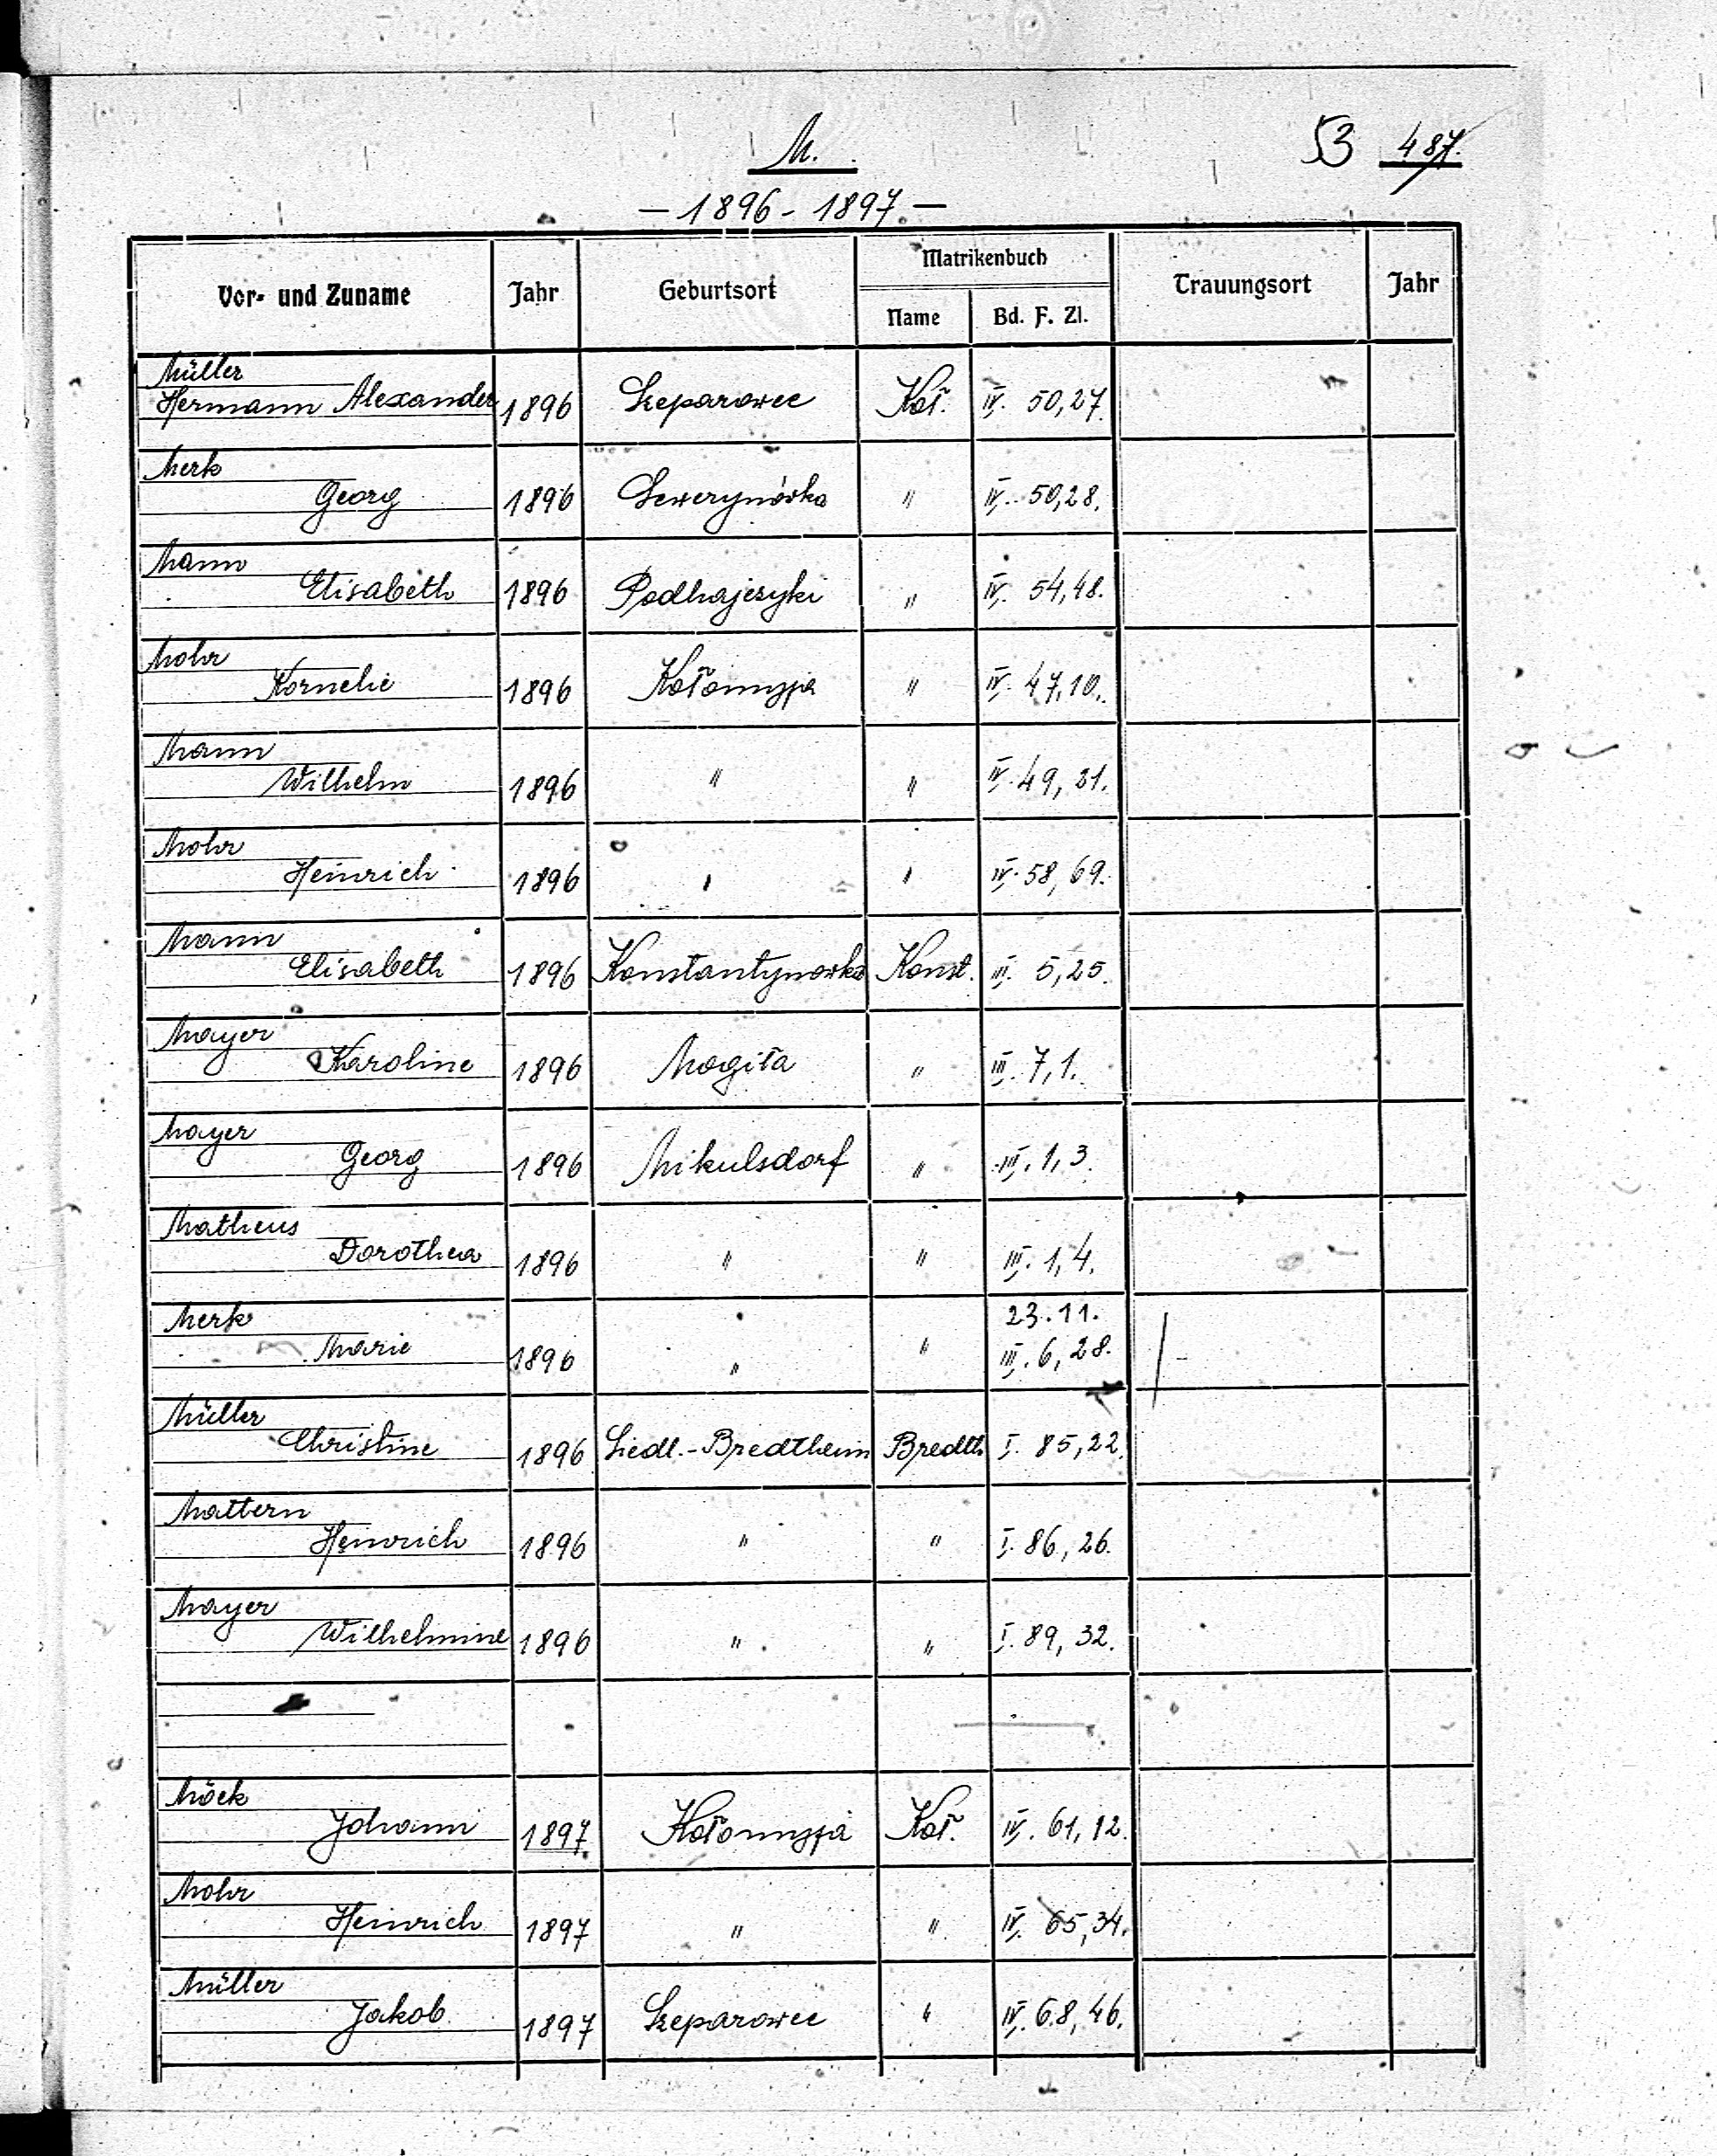 M.
53 487.
— 1896 - 1897 —
Vor- und Zuname Jahr Geburtsort Matrikenbuch Trauungsort Jahr
Name Bd. F. Zl.
Müller
Hermann Alexander 1896 Szeparowce Koł. IV. 50,27.
Merk
Georg 1896 Sewerynówka " IV. 50,28.
Mann
Elisabeth 1896 Podhajczyki " IV. 54,48.
Mohr
Kornelie 1896 Kołomyja " IV. 47,10.
Mann
Wilhelm 1896 " " IV. 49,21.
Mohr
Heinrich 1896 " " IV. 58,69.
Mann
Elisabeth 1896 Konstantynowka Konst. III. 5,25.
Mayer
Karoline 1896 Mogiła " III. 7,1.
Mayer
Georg 1896 Mikulsdorf " III. 1,3.
Matheus
Dorothea 1896 " " III. 1,4.
Merk 23.11.
Marie 1896 " " III. 6,28.
Müller
Christine 1896 Siedl.-Bredtheim Bredth I. 85,22.
Mattern
Heinrich 1896 " " I. 86,26.
Mayer
Wilhelmine 1896 " " I. 89,32.
Möck
Johann 1897 Kołomyja Koł. IV. 61,12.
Mohr
Heinrich 1897 " " IV. 65,34.
Müller
Jakob 1897 Szeparowce " IV. 68,46.